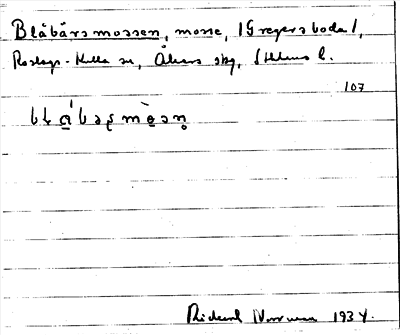 Blåbärsmossen, mosse, (Gregersboda),
Roslags-Kulla sn, Åkers skg, Sthlms l.
107
Rickard Norrman 1934.